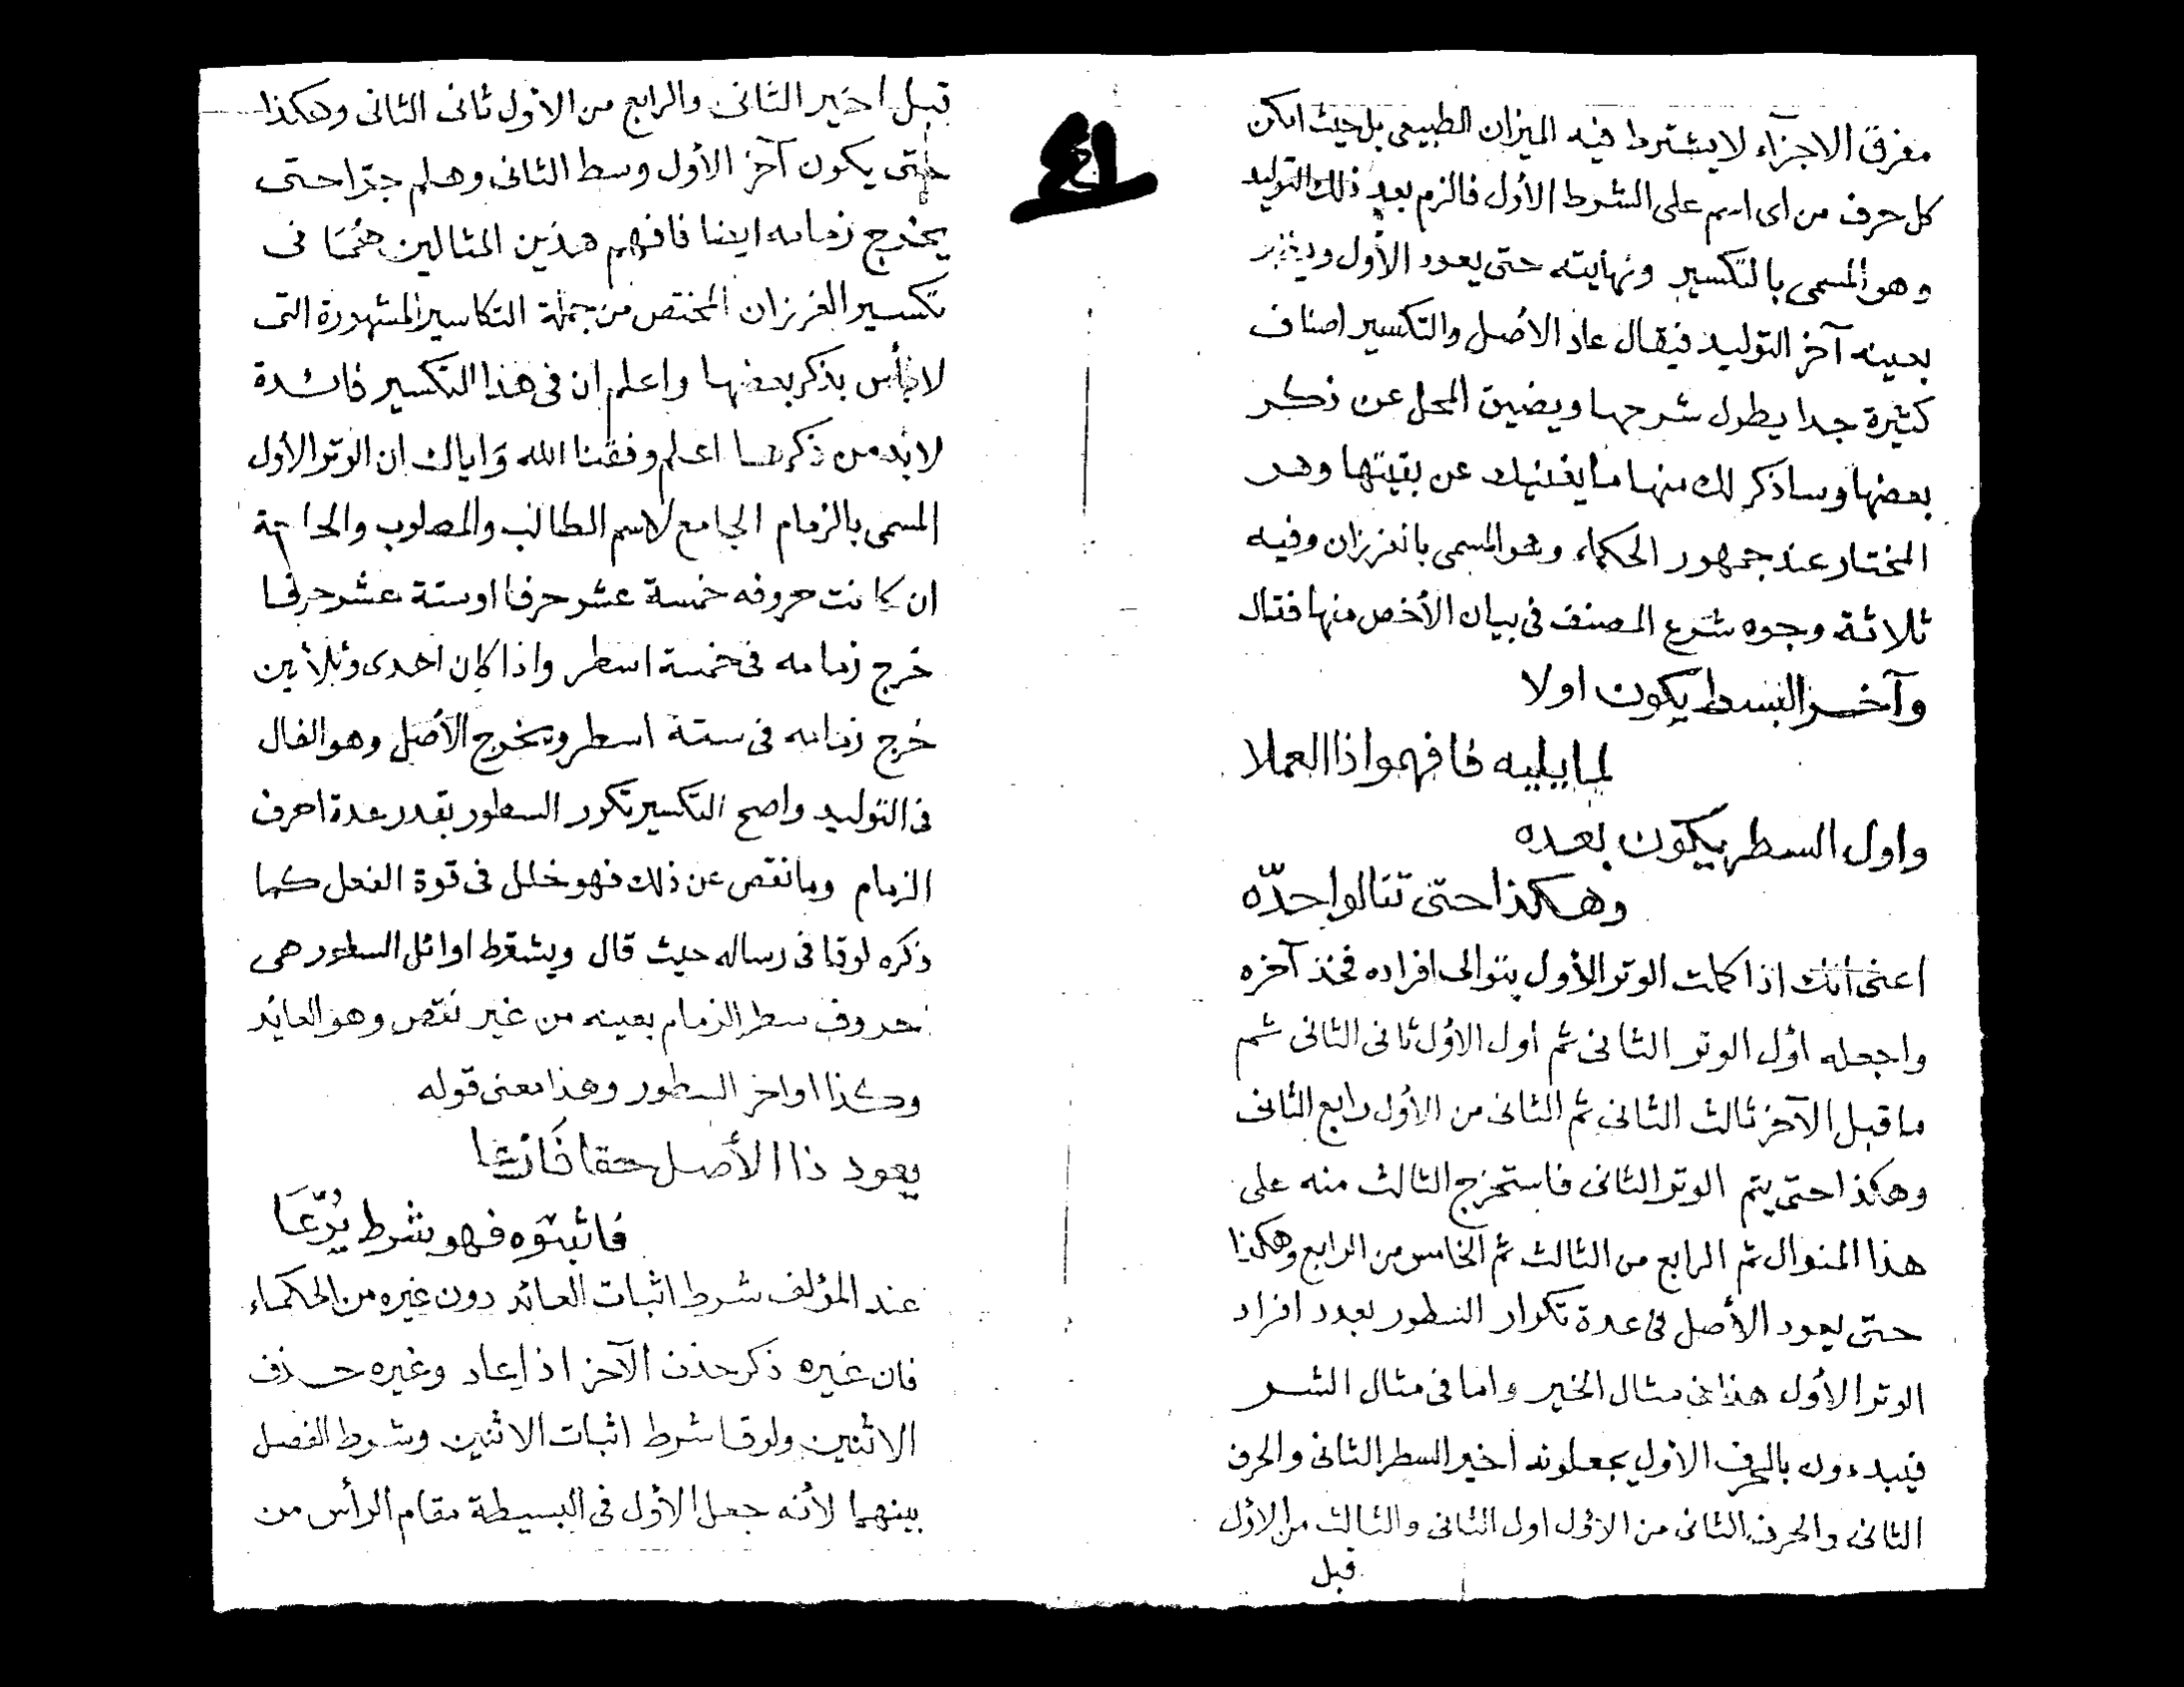 مفرق الاجزاء لا يشترط فيه الميزان الطبيعى بل حيث امكن
كل حرف من اى اسم على الشرط الأول فالزم بعد ذلك التوليد
وهو المسمى بالتكسير ونهايته حتى يعود الأول
بعينه آخر التوليد فيقال عاد الأصل والتكسير اصناف
كثيرة جدا يطول شرحها ويضيق المحل عن ذكر
بعضها وساذكر لك منها ما يغنيك عن بقيتها وهو
المختار عند جمهور الحكماء وهو المسمى بالغرزان وفيه
ثلاثة وجوه شرع المصنف فى بيان الأخص منها فقال
وآخر البسط يكون اولا
لما يليه فافهموا ذا العملا
واول السطر يكون بعده
وهكذا حتى تنالوا حدّه
اعنى انك اذا كملت الوتر الأول بتوالى افراده فخذ آخره
واجعله اوّل الوتر الثانى ثم أول الأوّل ثانى الثانى ثم
ما قبل الآخر ثالث الثانى ثم الثانى من الأول رابع الثانى
وهكذا حتى يتم الوتر الثانى فاستخرج الثالث منه على
هذا المنوال ثم الرابع من الثالث ثم الخامس من الرابع وهكذا
حتى يعود الأصل فى عدة تكرار السطور بعدد افراد
الوتر الأول هذا فى مثال الخير واما فى مثال الشر
فيبدءون بالحرف الأول يجعلونه أخير السطر الثانى والحرف
الثانى والحرف الثانى من الأول اول الثانى والثالث من الاول
قبل
قبل اخير الثانى والرابع من الأول ثانى الثانى وهكذا
حتى يكون آخر الأول وسط الثانى وهلم جرّا حتى
يخرج زمامه ايضا فافهم هذين المثالين هُمَا فى
تكسير الغرزان المختص من جملة التكاسير المشهورة التى
لا بأس بذكر بعضها واعلم ان فى هذا التكسير فائدة
لا بد من ذكرها اعلم وفقنا الله وَاياك ان الوتر الأول
المسمى بالزمام الجامع لاسم الطالب والمطلوب والحاجة
ان كانت حروفه خمسة عشر حرفا اوستة عشر حرفا
خرج زمامه فى خمسة اسطر واذا كان احدى وثلاثين
خرج زمامه فى ستة اسطر ويخرج الأصل وهو الفال
فى التوليد واصح التكسير تكرر السطور بقدر عدة احرف
الزمام وما نقص عن ذلك فهو خلل فى قوة الفعل كما
ذكره لوقا فى رساله حيث قال ويشترط اوائل السطور هى
حروف سطر الزمام بعينه من غير نقص وهو العائد
وكذا اواخر السطور وهذا معنى قوله
يعود ذا الأصل حقا
فاثبتوه فهو شرط يُدّعَا
عند المؤلف شرط اثبات العائد دون غيره من الحكماء
فان غيره ذكر حذف الآخر اذ اعاد وغيره حذف
الاثنين ولوقا شرط اثبات الاثنين وشرط الفصل
بينهما لأنه جعل الأول فى البسيطة مقام الرأس من